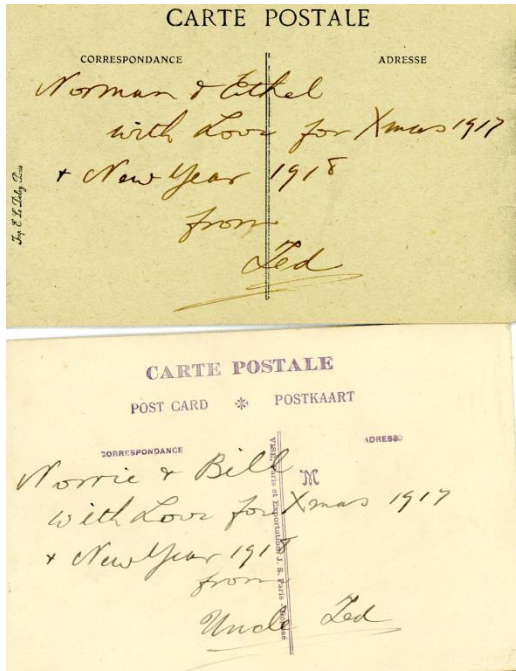 CARTE POSTALE
CORRESPONDANCE
ADRESSE
Norman & Ethel
with Love for Xmas 1917
+ New Year 1918
from
Ted
CARTE POSTALE
POST CARD * POSTKAART
CORRESPONDANCE
ADRESSE
Norrie & Bill
with Love for Xmas 1917
+ New Year 1918
from
Uncle Ted